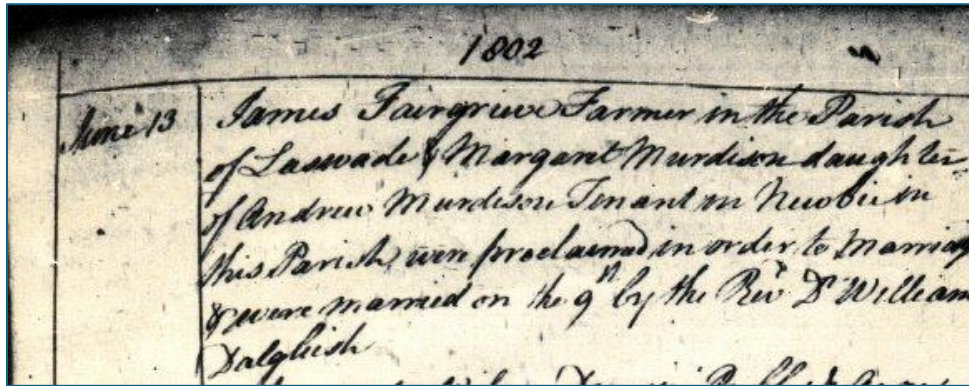 1802
June 13 James Fairgrieve Farmer in the Parish
of Lasswade & Margaret Murdison daughter
of Andrew Murdison Tenant in Newbie in
this Parish were proclaimed in order to Marriag
& were married on the 9th by the Revd Dr William
Dalgliesh